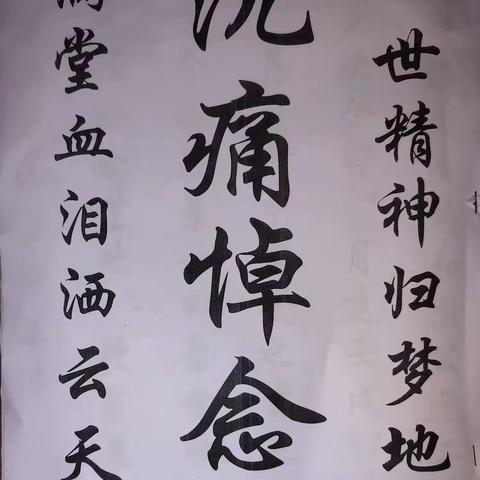 世精神归梦地
沉痛悼念
满堂血泪洒云天